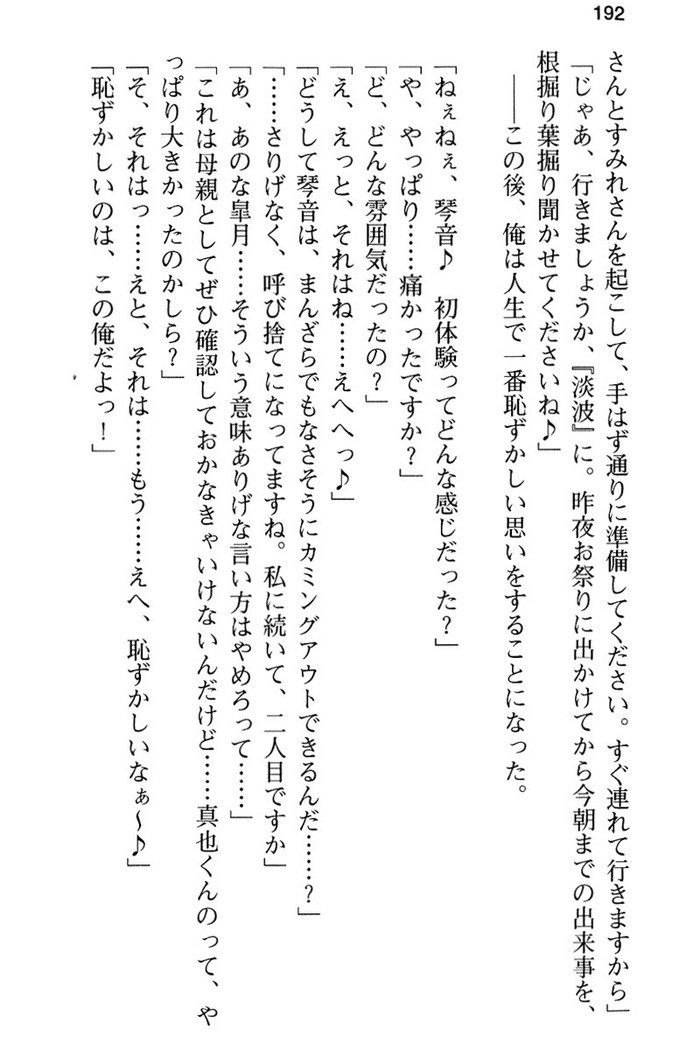 192
さんとすみれさんを起こして、手はず通りに準備してください。すぐ連れて行きますから」
「じゃあ、行きましょうか、『淡波』に。昨夜お祭りに出かけてから今朝までの出来事を、
根掘り葉掘り聞かせてくださいね♪」
――この後、俺は人生で一番恥ずかしい思いをすることになった。
「ねぇねぇ、琴音♪　初体験ってどんな感じだった？」
「や、やっぱり……痛かったですか？」
「ど、どんな雰囲気だったの？」
「え、えっと、それはね……えへへっ♪」
「どうして琴音は、まんざらでもなさそうにカミングアウトできるんだ……？」
「……さりげなく、呼び捨てになってますね。私に続いて、二人目ですか」
「あ、あのな皐月……そういう意味ありげな言い方はやめろって……」
「これは母親としてぜひ確認しておかなきゃいけないんだけど……真也くんのって、や
っぱり大きかったのかしら？」
「そ、それはっ……えと、それは……もう……えへ、恥ずかしいなぁ～♪」
「恥ずかしいのは、この俺だよっ！」